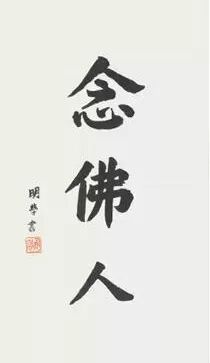 念佛人
明學書